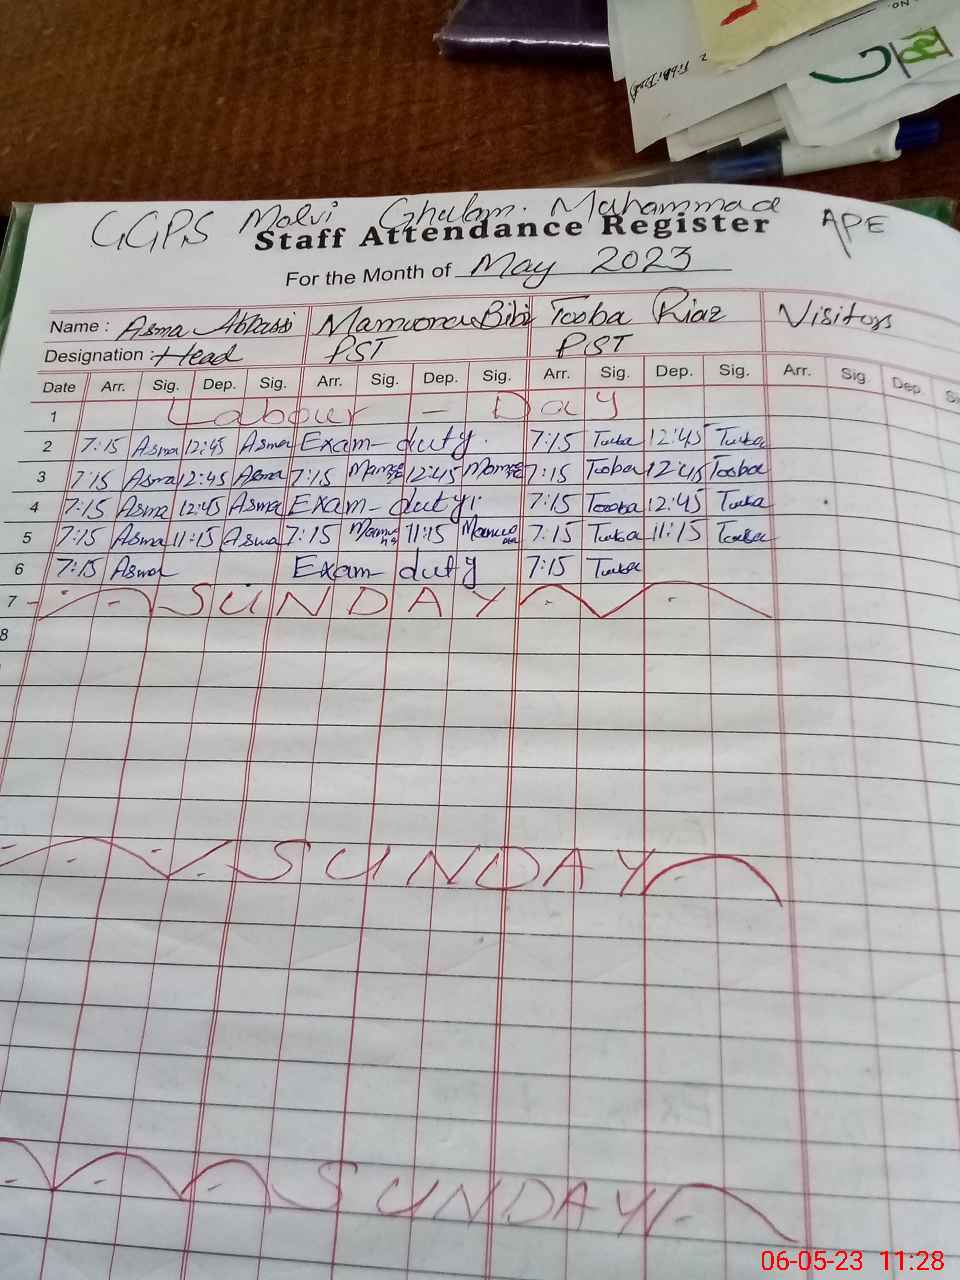 GGPS Molvi Ghulam Muhammad APE
Staff Attendance Register
For the Month of May 2023
Name : Asma Abbassi Mamoona Bibi Tooba Riaz Visitors
Designation : Head PST PST
Date Arr. Sig. Dep. Sig. Arr. Sig. Dep. Sig. Arr. Sig. Dep. Sig. Arr. Sig. Dep.
1 Labour - Day
2 7:15 Asma 12:45 Asma Exam duty. 7:15 Tooba 12:45 Tooba
3 7:15 Asma 12:45 Asma 7:15 12:45 7:15 Tooba 12:45 Tooba
4 7:15 Asma 12:45 Asma Exam duty. 7:15 Tooba 12:45 Tooba
5 7:15 Asma 11:15 Asma 7:15 11:15 7:15 Tooba 11:15 Tooba
6 7:15 Asma Exam duty 7:15 Tooba
7 SUNDAY
8
SUNDAY
SUNDAY
06-05-23 11:28